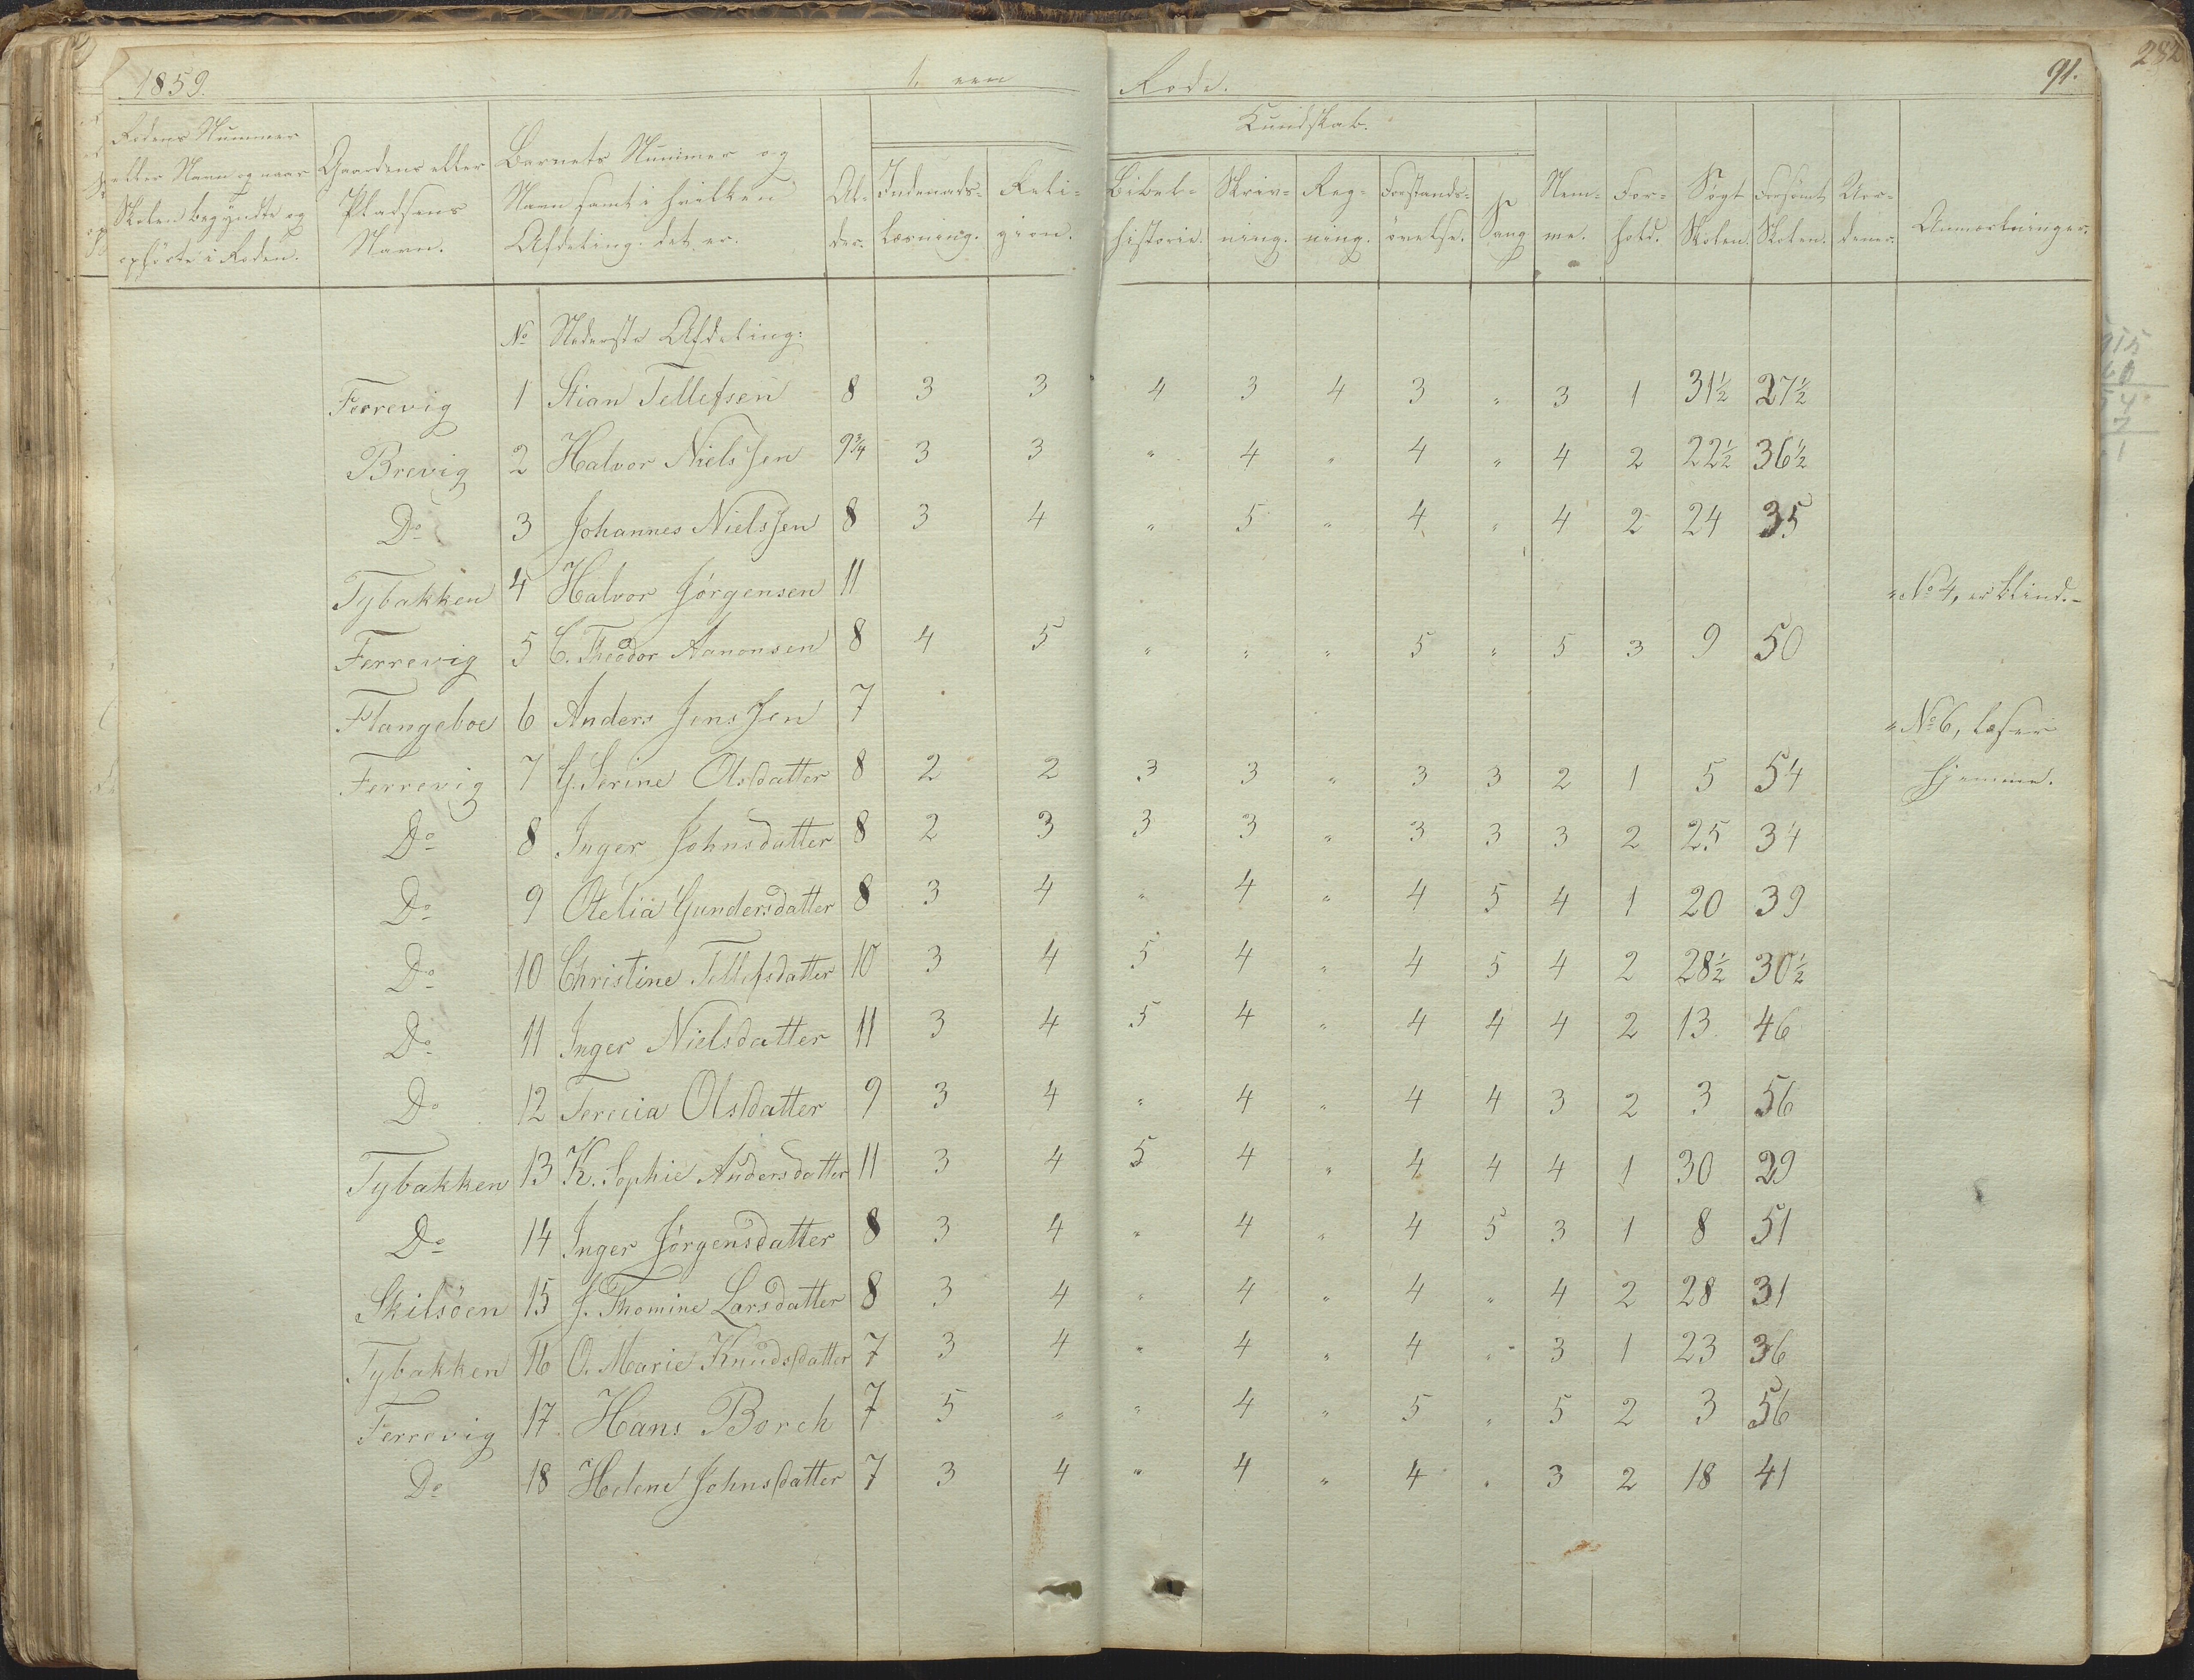 1859. 1. een Rode. 91. 232
Kundskab.
Rodens Nummer eller Navn og naar Skolen begyndte og ophørte i Roden.
Gaardens eller Pladsens Navn.
Barnets Nummer og Navn samt i hvilken Afdeling det er.
Al-der.
Indenads-læsning.
Reli-gion.
Bibel-historie.
Skriv-ning.
Reg-ning.
Forstands-øvelse.
Sang
Nem-me.
For-hold.
Søgt Skolen.
Forsømt Skolen.
Anmærkninger.
No Nederste Afdeling:
Ferrevig 1 Stian Tellefsen 8 3 3 4 3 4 3 " 3 1 31½ 27½
Brevig 2 Halvor Nielssen 9¾ 3 3 " 4 " 4 " 4 2 22½ 36½
Do 3 Johannes Nielssen 8 3 4 " 5 " 4 " 4 2 24 35
Tybakken 4 Halvor Jørgensen 11 " No 4, er blind.-
Ferrevig 5 C. Theodor Aanonsen 8 4 5 " " " 5 " 5 3 9 50
Flangeboe 6 Anders Jenssen 7 " No 6, læser
Ferrevig 7 G. Serine Olsdatter 8 2 2 3 3 " 3 3 2 1 5 54 hjemme.
Do 8 Inger Johnsdatter 8 2 3 3 3 " 3 3 3 2 25 34
Do 9 Otelia Gundersdatter 8 3 4 " 4 " 4 5 4 1 20 39
Do 10 Christine Tellefsdatter 10 3 4 5 4 " 4 5 4 2 28½ 30½
Do 11 Inger Nielsdatter 11 3 4 5 4 " 4 4 4 2 13 46
Do 12 Terecia Olsdatter 9 3 4 " 4 " 4 4 3 2 3 56
Tybakken 13 K. Sophie Andersdatter 11 3 4 5 4 " 4 4 4 1 30 29
Do 14 Inger Jørgensdatter 8 3 4 " 4 " 4 5 3 1 8 51
Skilsöen 15 J. Thomine Larsdatter 8 3 4 " 4 " 4 " 4 2 28 31
Tybakken 16 O. Marie Knudsdatter 7 3 4 " 4 " 4 " 3 1 23 36
Ferrevig 17 Hans Borch 7 5 " " 4 " 5 " 5 2 3 56
Do 18 Helene Johnsdatter 7 3 4 " 4 " 4 " 3 2 18 41